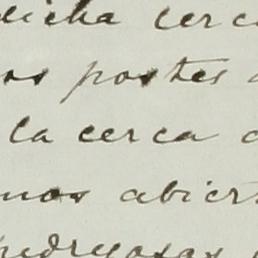 dicha cerc
os postes
la cerca
mos abier
pedregosas